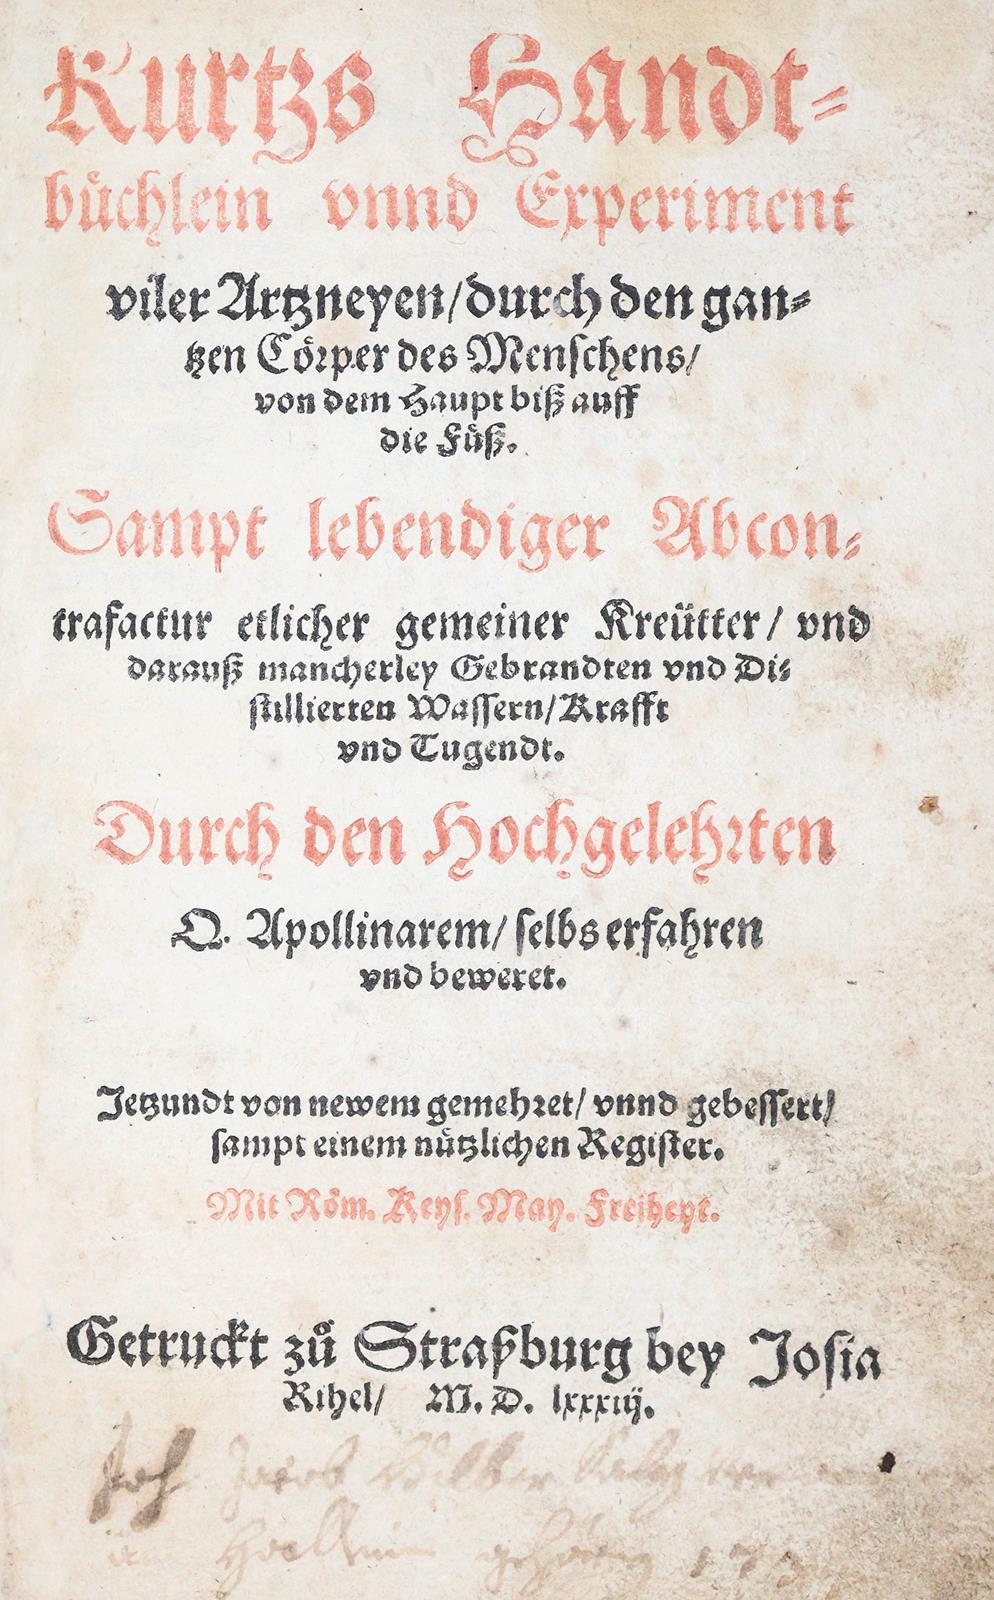 Kurtzs Handt⸗
buͤchlein vnnd Experiment
viler Artzneyen/durch den gan⸗
tzen Coͤrper des Menschens/
von dem Haupt biß auff
die Fuͤß.
Sampt lebendiger Abcon⸗
trafactur etlicher gemeiner Kreütter/ vnd
darauß mancherley Gebrandten vnd Di⸗
stillierten Wassern/Krafft
vnd Tugendt.
Durch den Hochgelehrten
Q. Apollinarem/ selbs erfahren
vnd beweret.
Jetzundt von newem gemehret/ vnnd gebessert/
sampt einem nuͤtzlichen Register.
Mit Roͤm. Keys. May. Freiheyt.
Getruckt zuͦ Straßburg bey Josia
Rihel/ M. D. lxxxiij.
Joh Jacob